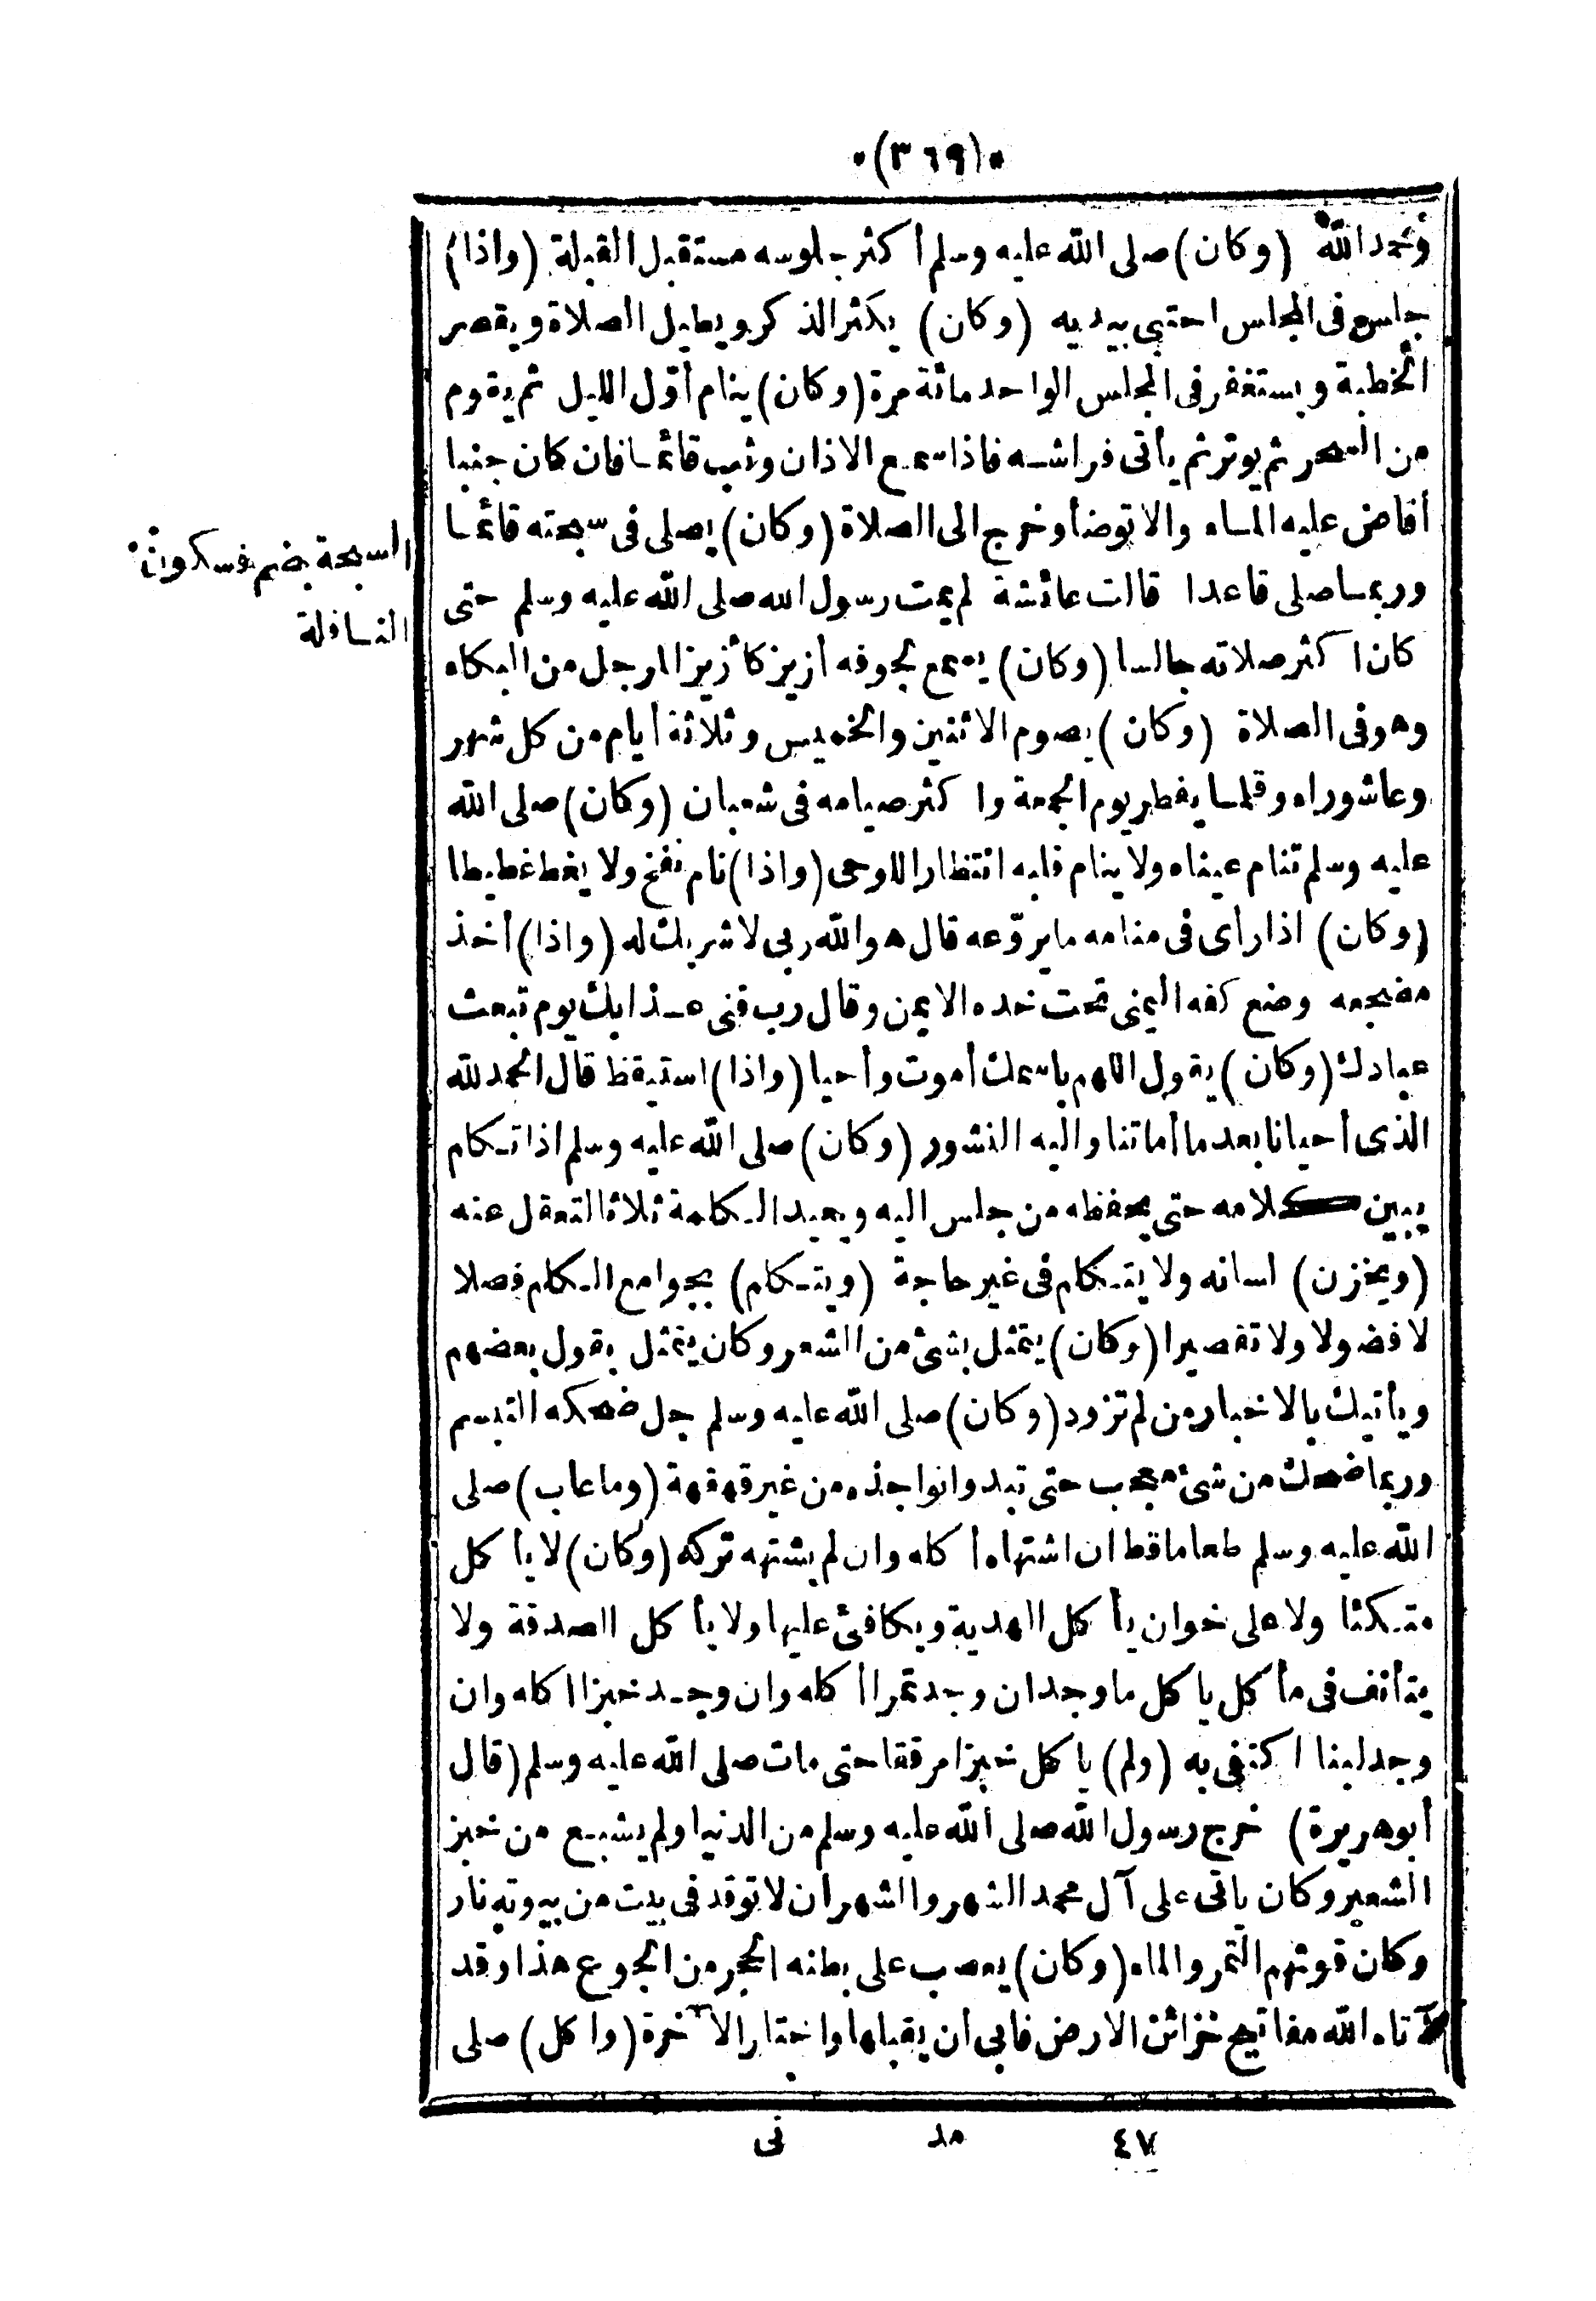 (٣٦٩)
وحمد الله (وكان) صلى الله عليه وسلم أكثر جلوسه مستقبل القبلة (واذا)
جلس فى المجلس احتبى بيديه (وكان) يكثر الذكر ويطيل الصلاة ويقصر
الخطبة ويستغفر فى المجلس الواحد مائة مرة (وكان) ينام أوّل الليل ثم يقوم
من السحر ثم يوتر ثم يأتى فراشه فاذا سمع الاذان وثب قائما فان كان جنبا
أفاض عليه الماء والا توضأ وخرج الى الصلاة (وكان) يصلى فى سبحته قائما
السبحة بضم فسكون
النافلة
وربما صلى قاعدا قالت عائشة لم يمت رسول الله صلى الله عليه وسلم حتى
كان اكثر صلاته جالسا (وكان) يسمع لجوفه أزيز كأزيز المرجل من البكاء
وهو فى الصلاة (وكان) يصوم الاثنين والخميس وثلاثة أيام من كل شهر
وعاشوراء وقلما يفطر يوم الجمعة واكثر صيامه فى شعبان (وكان) صلى الله
عليه وسلم تنام عيناه ولا ينام قلبه انتظارا للوحى (واذا) نام نفخ ولا يغط غطيطا
(وكان) اذا رأى فى منامه ما يروّعه قال هو الله ربى لا شريك له (واذا) أخذ
مضجعه وضع كفه اليمنى تحت خده الايمن وقال رب قنى عذابك يوم تبعث
عبادك (وكان) يقول اللهم باسمك أموت وأحيا (واذا) استيقظ قال الحمد لله
الذى أحيانا بعد ما أماتنا واليه النشور (وكان) صلى الله عليه وسلم اذا تكلم
يبين كلامه حتى يحفظه من جلس اليه ويعيد الكلمة ثلاثا لتعقل عنه
(ويخزن) لسانه ولا يتكلم فى غير حاجة (ويتكلم) بجوامع الكلم فصلا
لا فضولا ولا تقصيرا (وكان) يتمثل بشئ من الشعر وكان يتمثل بقول بعضهم
ويأتيك بالاخبار من لم تزود (وكان) صلى الله عليه وسلم جل ضحكه التبسم
وربما ضحك من شئ معجب حتى تبدو انواجذه من غير قهقهة (وما عاب) صلى
الله عليه وسلم طعاما قط ان اشتهاه أكله وان لم يشتهه تركه (وكان) لا يأكل
متكئا ولا على خوان يأكل الهدية ويكافئ عليها ولا يأكل الصدقة ولا
يتأنف فى مأكل ياكل ما وجد ان وجد تمرا أكله وان وجد خبزا اكله وان
وجد لبنا اكتفى به (ولم) ياكل خبزا مرققا حتى مات صلى الله عليه وسلم (قال
أبو هريرة) خرج رسول الله صلى الله عليه وسلم من الدنيا ولم يشبع من خبز
الشعير وكان ياتى على آل محمد الشهر والشهران لا توقد فى بيت من بيوته نار
وكان قوتهم التمر والماء (وكان) يعصب على بطنه الحجر من الجوع هذا وقد
آتاه الله مفاتيح خزائن الارض فابى أن يقبلها واختار الآخرة (واكل) صلى
٤٧ مد نى